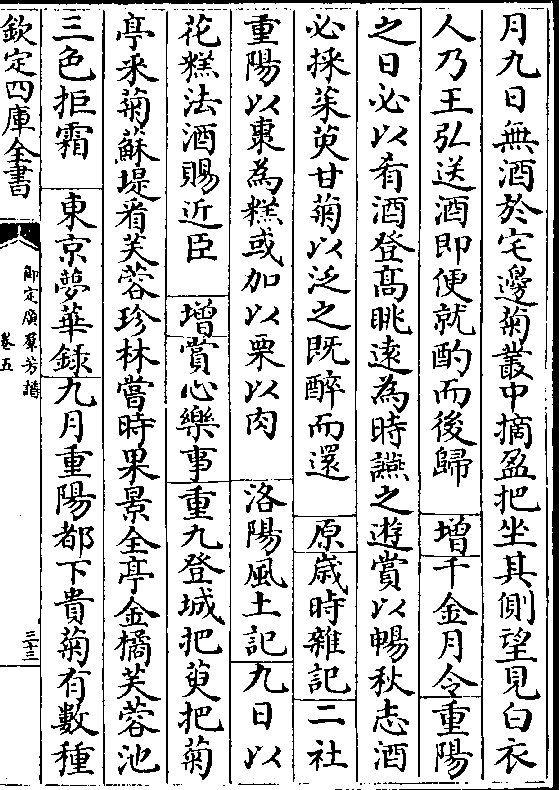 月九日無酒於宅邊菊叢中摘盈把坐其側望見白衣
人乃王弘送酒即便就酌而後歸 增 千金月令 重陽
之日必以肴酒登高眺遠為時讌之遊賞以暢秋志酒
必採茱萸甘菊以泛之既醉而還 原 歲時雜記 二社
重陽以棗為糕或加以栗以肉 洛陽風土記 九日以
花糕法酒賜近臣 增 賞心樂事 重九登城把萸把菊
亭采菊蘇堤看芙蓉珍林嘗時果景全亭金橘芙蓉池
三色拒霜 東京夢華錄 九月重陽都下貴菊有數種
欽定四庫全書
御定廣羣芳譜
卷五
三十三